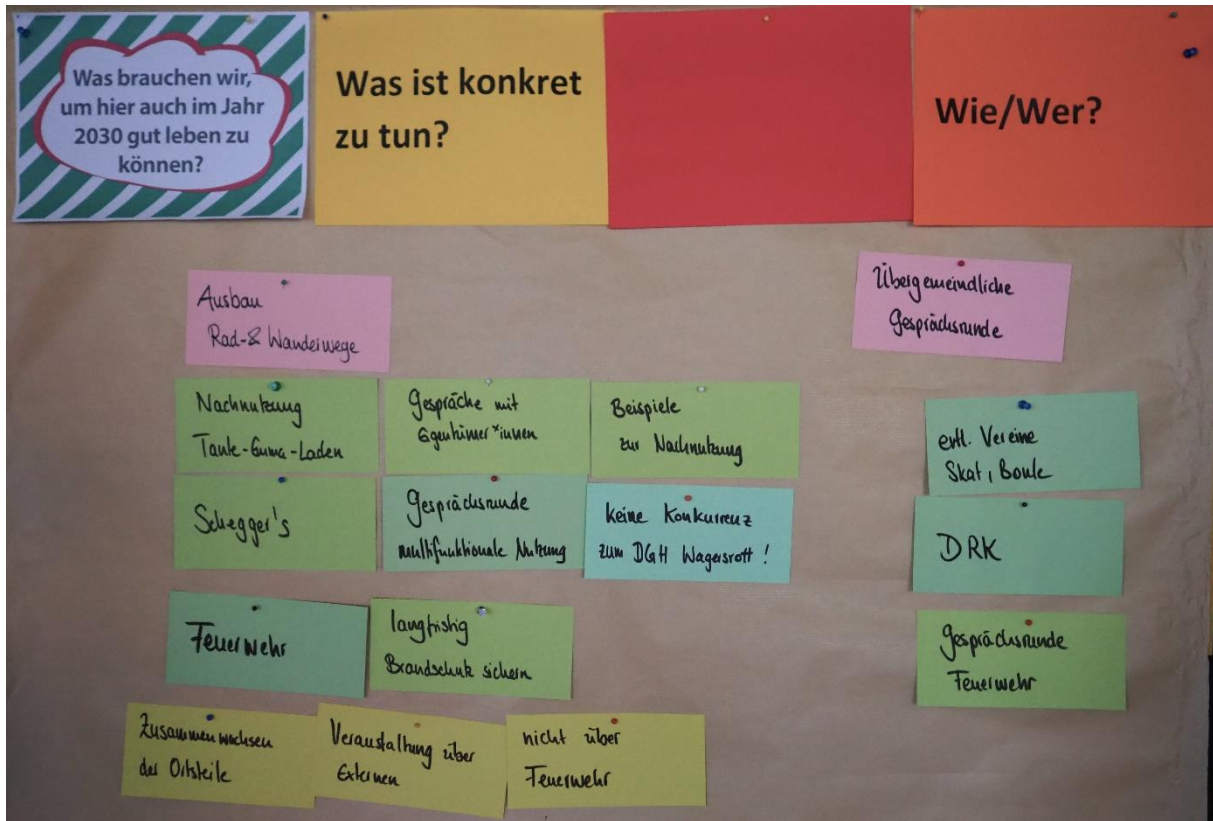 Was brauchen wir,
um hier auch im Jahr
2030 gut leben zu
können?
Was ist konkret
zu tun?
Wie/Wer?
Ausbau
Rad-& Wanderwege
Übergemeindliche
Gesprächsrunde
Nachnutzung
Tante-Emma-Laden
Gespräche mit
Eigentümer*innen
Beispiele
zur Nachnutzung
evtl. Vereine
Skat, Boule
Schegger's
Gesprächsrunde
multifunktionale Nutzung
keine Konkurrenz
zum DGH Wagersrott!
DRK
Feuerwehr
langfristig
Brandschutz sichern
Gesprächsrunde
Feuerwehr
Zusammenwachsen
der Ortsteile
Veranstaltung über
Externen
nicht über
Feuerwehr